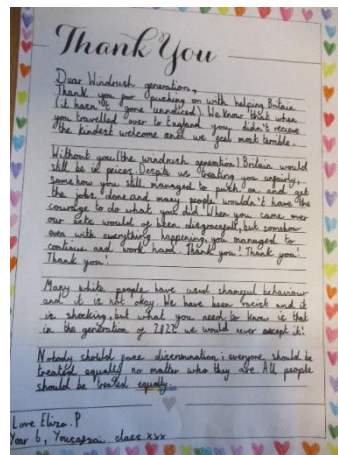 Thank You
Dear Windrush generation,
Thank you for pushing on with helping Britain
(it hasn't gone unnoticed). We know that when
you travelled over to England you didn't recieve
the kindest welcome and we feel most terrible.
Without you (the windrush generation) Britain would
still be in peices. Despite us treating you unfairly,
somehow you still managed to push on and get
the jobs done and many people wouldn't have the
courage to do what you did. When you came over
our acts would of been disgraceful, but somehow
even with everything happening, you managed to
continue and work hard. Thank you! Thank you!
Thank you!
Many white people have used shameful behaviour
and it is not okay. We have been racist and it
is shocking, but what you need to know is that
in the generation of 2022 we would never accept it!
Nobody should face discrimination; everyone should be
treated equally no matter who they are. All people
should be treated equally.
Love Eliza. P
Year 6, Yousafzai class xxx